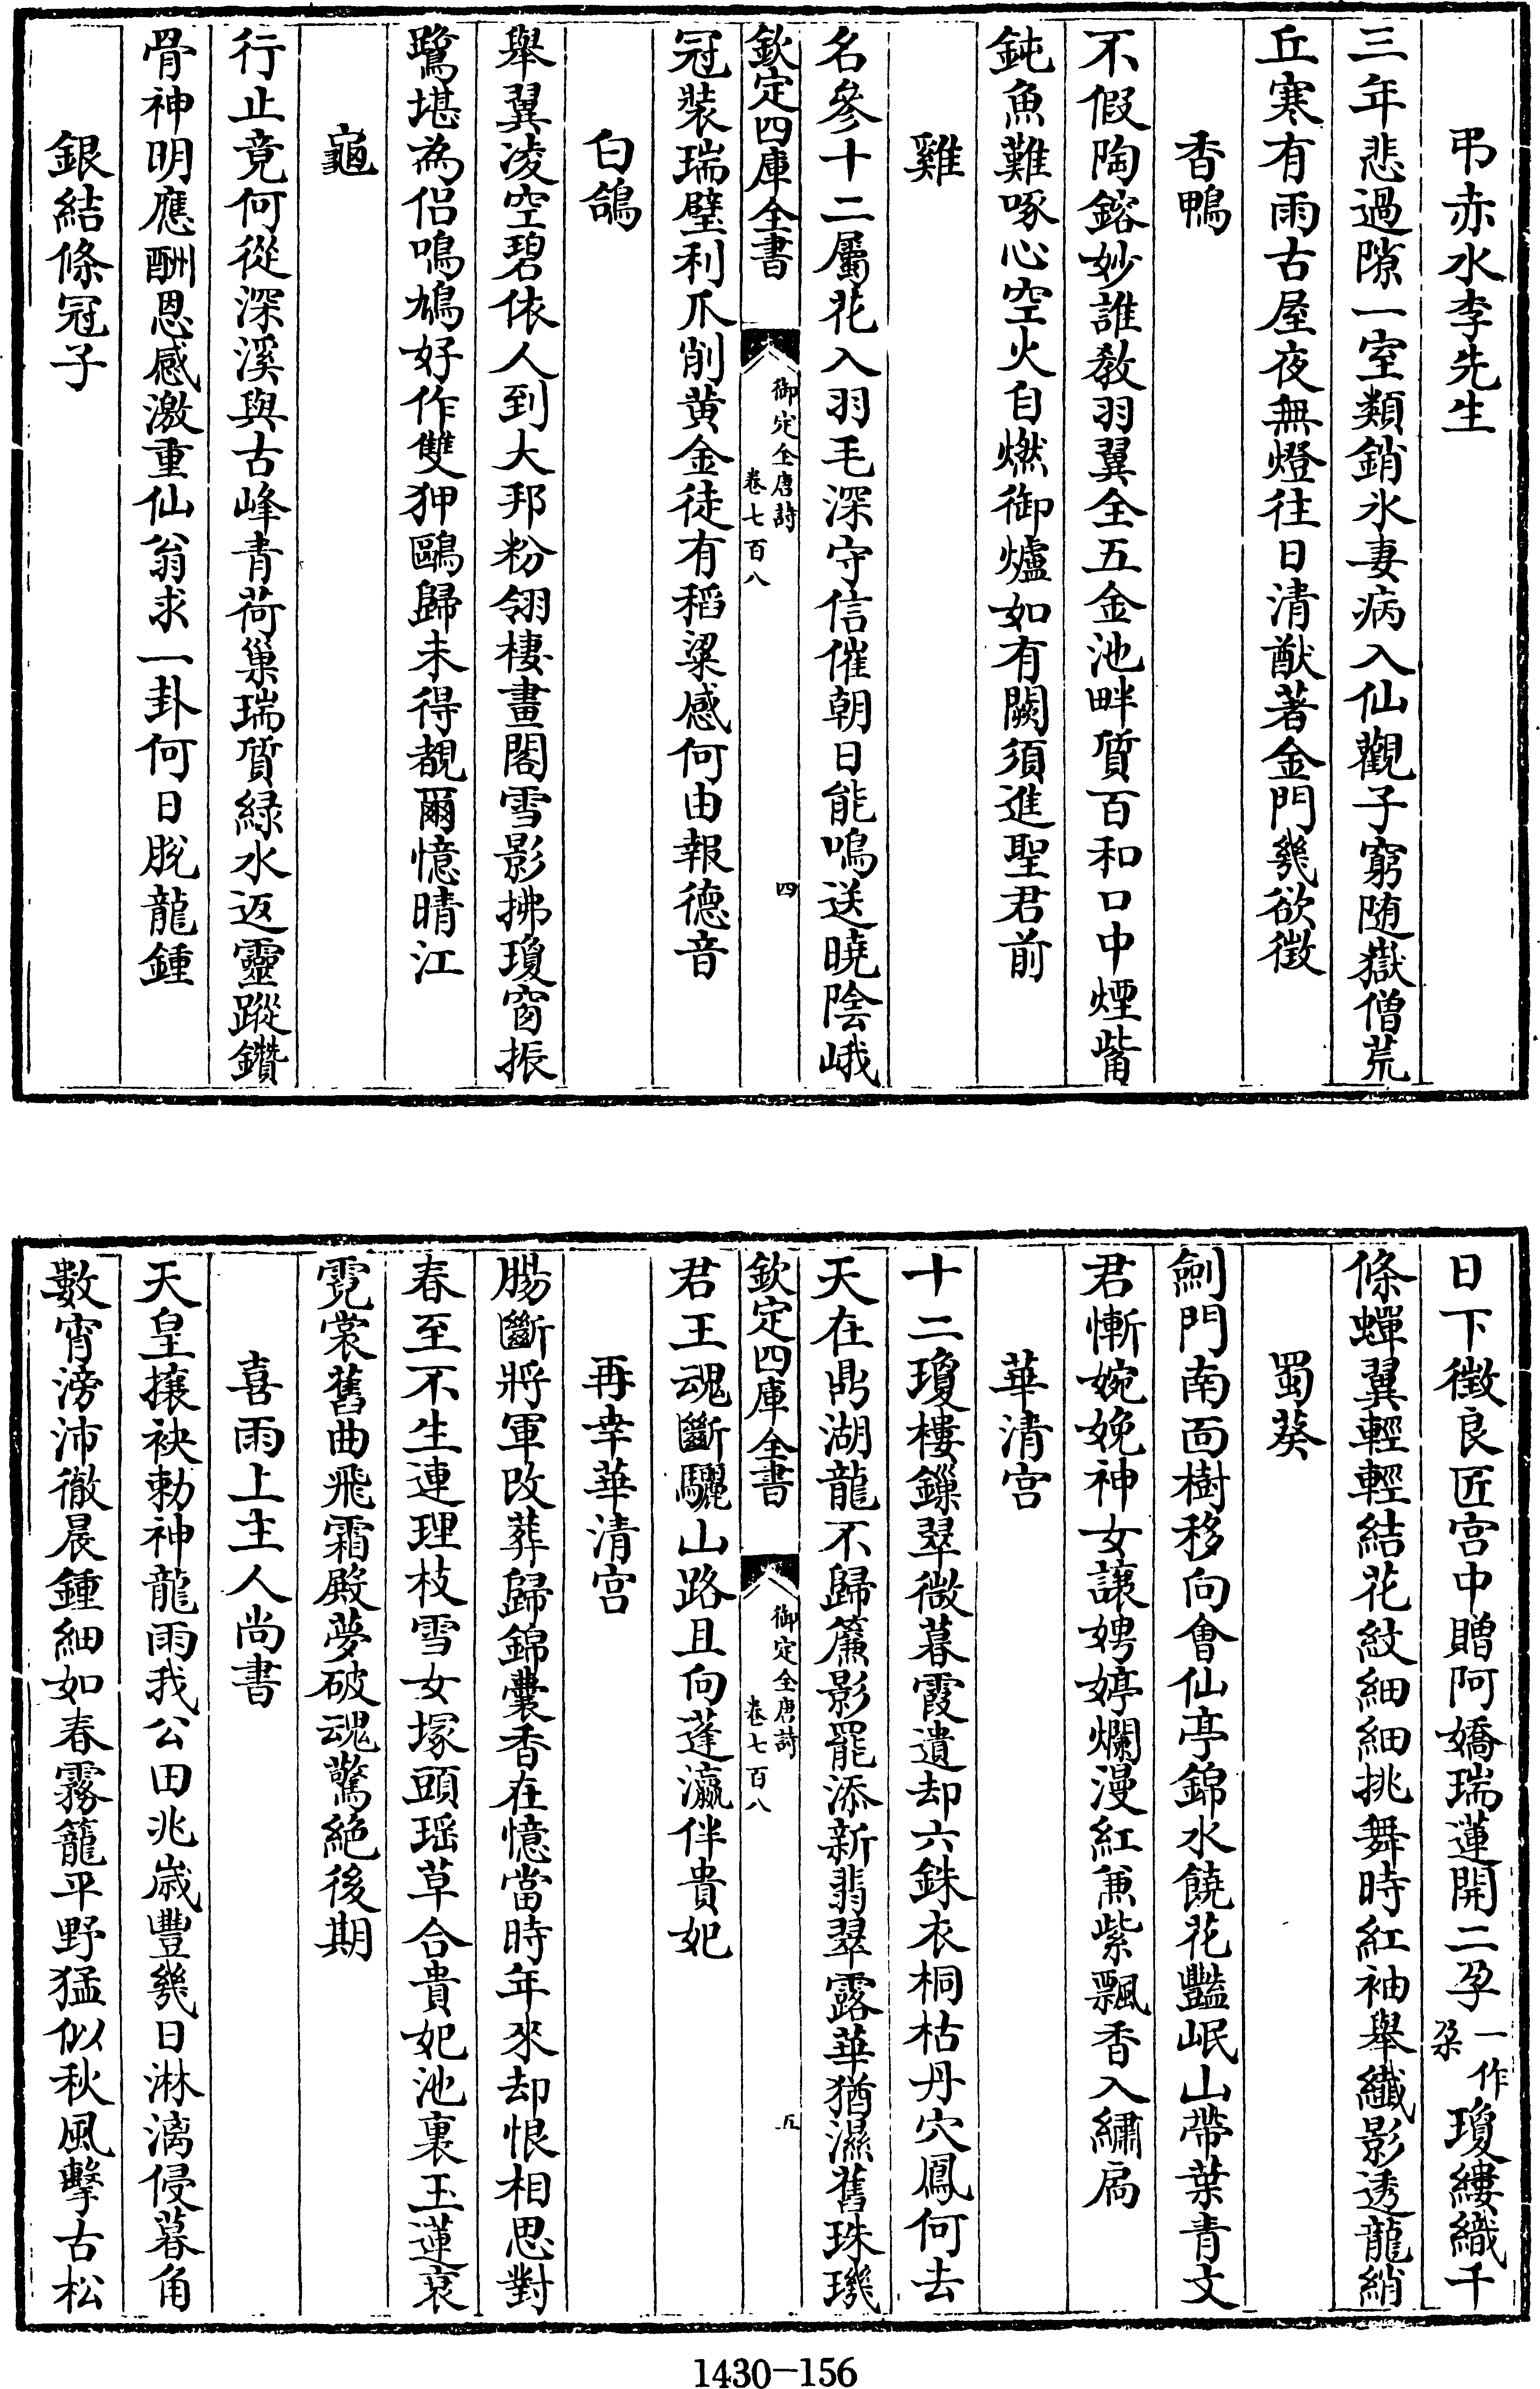 弔赤水李先生
三年悲過隙一室類銷氷妻病入仙觀子窮随嶽僧荒
丘寒有雨古屋夜無燈往日清猷著金門幾欲徴
香鴨
不假陶鎔妙誰教羽翼全五金池畔質百和口中煙觜
鈍魚難啄心空火自燃御爐如有闕須進聖君前
雞
名參十二屬花入羽毛深守信催朝日能鳴送曉陰峨
欽定四庫全書
御定全唐詩
卷七百八
四
冠裝瑞璧利爪削黄金徒有稻粱感何由報德音
白鴿
舉翼凌空碧依人到大邦粉翎棲畫閣雪影拂瓊窗振
鷺堪為侣鳴鳩好作雙狎鷗歸未得覩爾憶晴江
龜
行止竟何從深溪與古峰青荷巢瑞質緑水返靈蹤鑽
骨神明應酬恩感激重仙翁求一卦何日脱龍鍾
銀結條冠子
日下徴良匠宫中贈阿嬌瑞蓮開二孕一作朶瓊縷織千
條蟬翼輕輕結花紋細細挑舞時紅袖舉纖影透龍綃
蜀葵
劍門南面樹移向會仙亭錦水饒花豔岷山帶葉青文
君慚婉娩神女讓娉婷爛漫紅兼紫飄香入繡扃
華清宫
十二瓊樓鏁翠微暮霞遺却六銖衣桐枯丹穴鳳何去
天在鼎湖龍不歸簾影罷添新翡翠露華猶濕舊珠璣
欽定四庫全書
御定全唐詩
卷七百八
五
君王魂斷驪山路且向蓬瀛伴貴妃
再幸華清宫
腸斷將軍改葬歸錦囊香在憶當時年來却恨相思對
春至不生連理枝雪女塚頭瑶草合貴妃池裏玉蓮衰
霓裳舊曲飛霜殿夢破魂驚絶後期
喜雨上主人尚書
天皇攘袂勅神龍雨我公田兆歳豐幾日淋漓侵暮角
數宵滂沛徹晨鍾細如春霧籠平野猛似秋風擊古松
1430-156